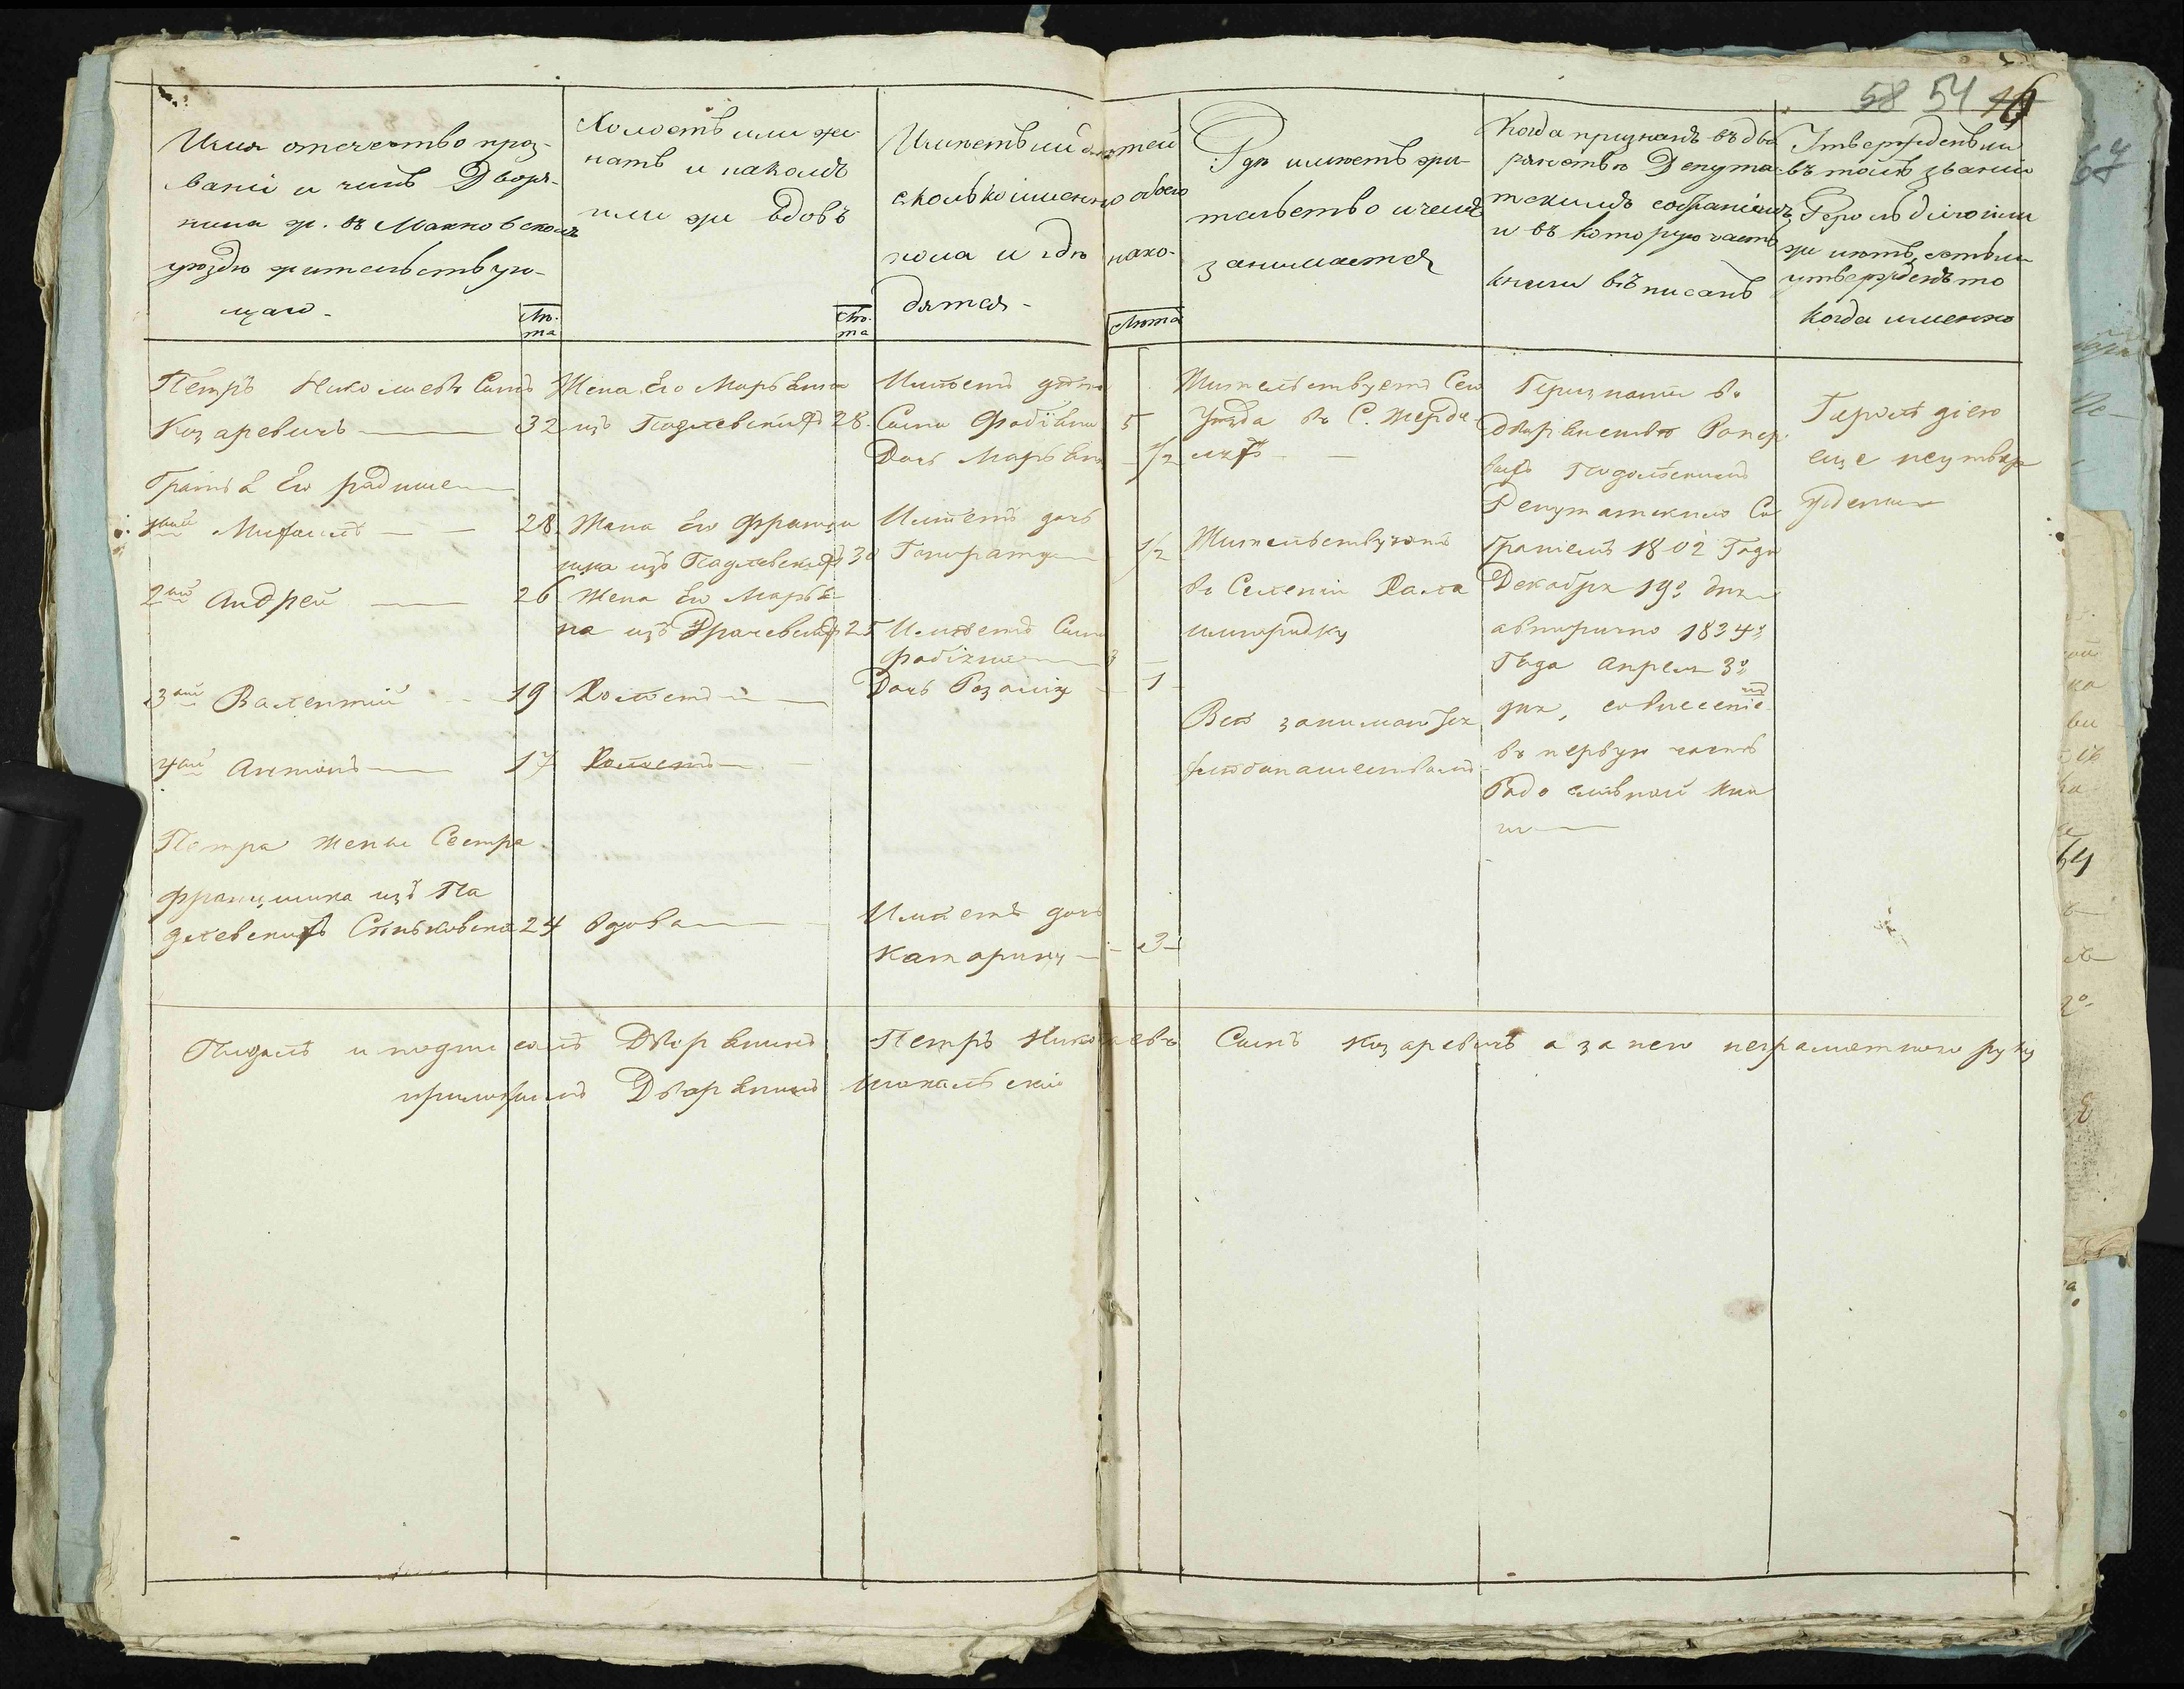 58 54 16
Имя отечество проз-
ваніе и чинъ Дворя-
нина ж. въ Махновскомъ
уѣздѣ жительствую-
щаго -
Лѣ-
та
Холостъ или же-
натъ и на комъ
или же вдовъ
Лѣ-
та
Имѣетъ ли дѣтей
сколько именно обоего
пола и гдѣ нахо-
дятся -
Лѣта
Гдѣ имѣетъ жи-
тельство и чемъ
занимается
Когда признанъ въ дво
рянствѣ Депута-
тскимъ собраніемъ
и въ которую часть
книги вписанъ
Утвержденъ ли
въ томъ званіи
Герольдіею или
же нѣтъ, естьли
утвержденъ то
когда именно
Петръ Николаевъ Сынъ
Козаревичъ — 32
Жена Его Марьяна
изъ Подлевскихъ 28
Имѣетъ дѣтей
Сына Фабіяна 5
Дочь Марьяну 1/2
Жительствуетъ Сего
Уезда въ С. Жерде
лѣхъ — —
Признаны въ
Дворянствѣ
Подольскимъ
Депутатскимъ Со
браніемъ 1802 Года
Декабря 19го дня
авторично 1834го
Года Апреля 3го
дня, совнесеніемъ
въ первую часть
Родословной Кни
ги —
Герольдіею
еще неутвер
ждены
Братья Его родные —
1ый Михаилъ — — 28
Жена Его Францы
шка изъ Подлевскихъ 30
Имѣетъ дочь
Гонората 1/2
Жительствуютъ
въ Селеніи Хала
имгородку
2ый Андрей — 26
Жена Его Марья
на изъ Драчевскихъ 25
Имѣетъ Сына
Фабіяна — 3 —
Дочь Розалію — 1 -
3ий Валентій — 19 Холостъ —
Все занимаются
хлѣбопашествомъ
4ый Антонъ — 17 Холостъ — —
Петра Жены Сестра
Францишка изъ По
длевскихъ 24 вдова —
Имѣетъ дочь
Катарину — 3 -
Подалъ и подписалъ Дворянинъ Петръ Николаевъ Сынъ Козаревичъ а за него неграмотного руку
приложилъ Дворянинъ